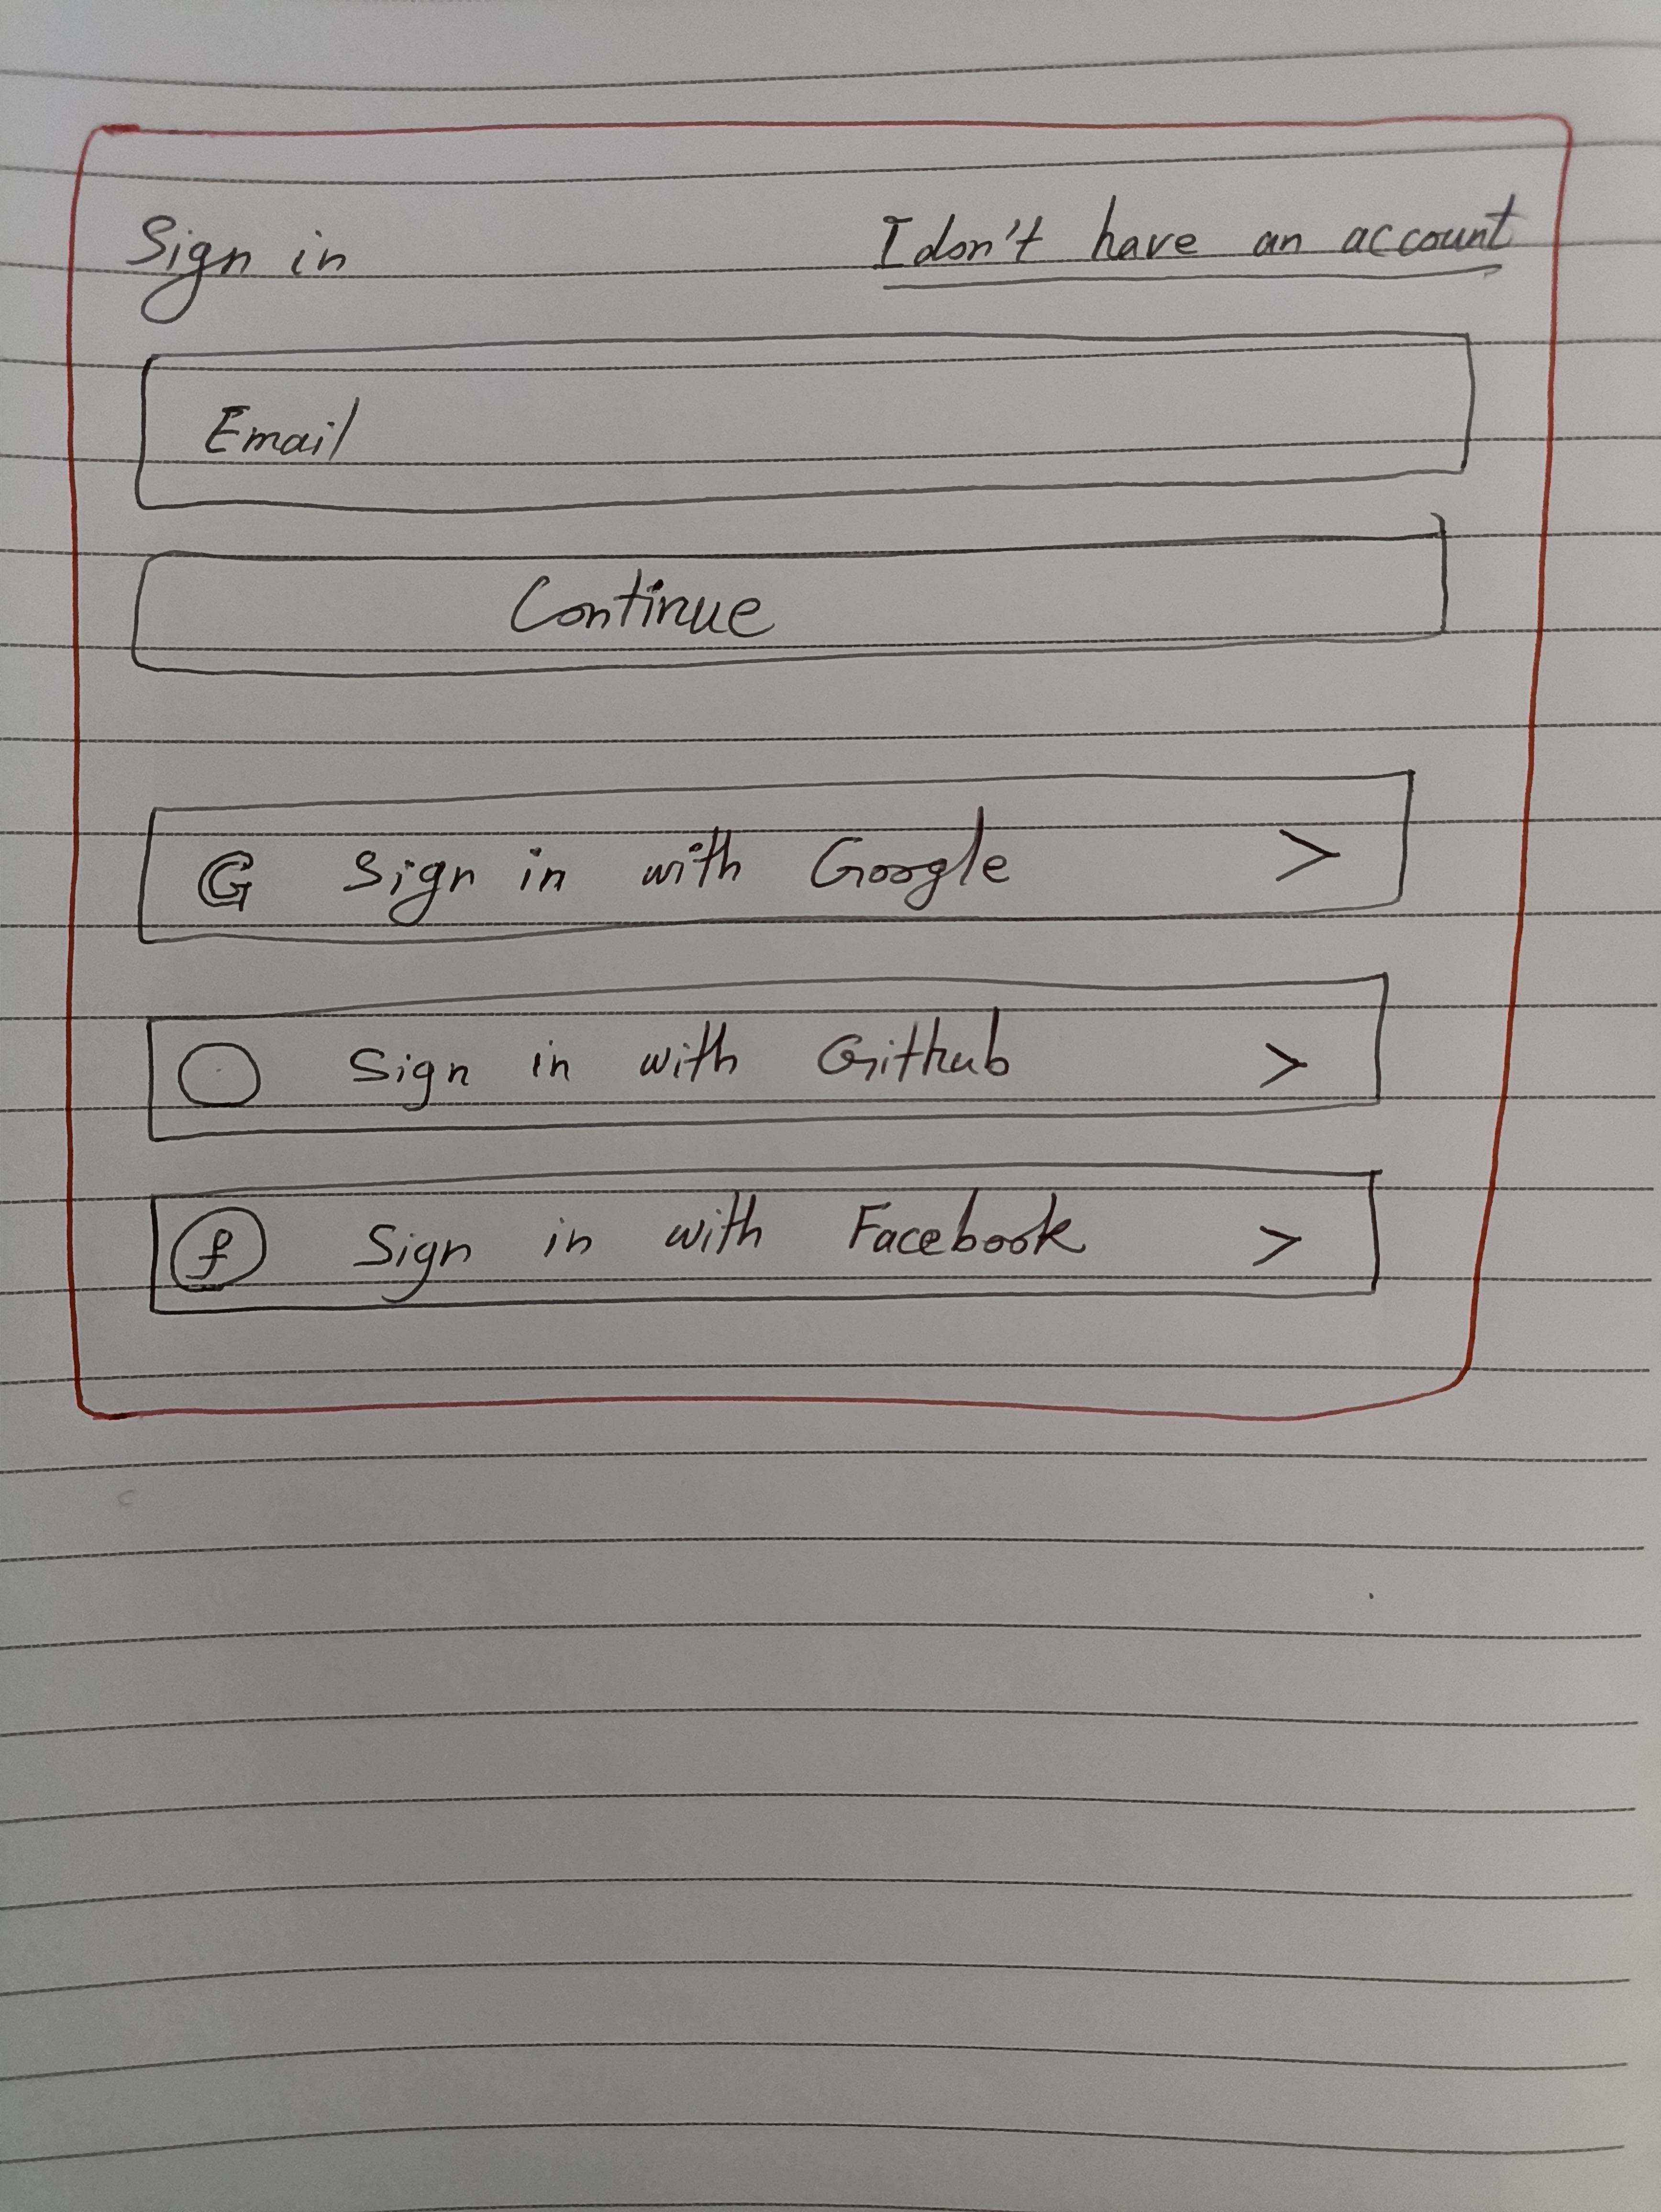 Sign in I don't have an account
Email
Continue
G Sign in with Google >
Sign in with Github >
f Sign in with Facebook >